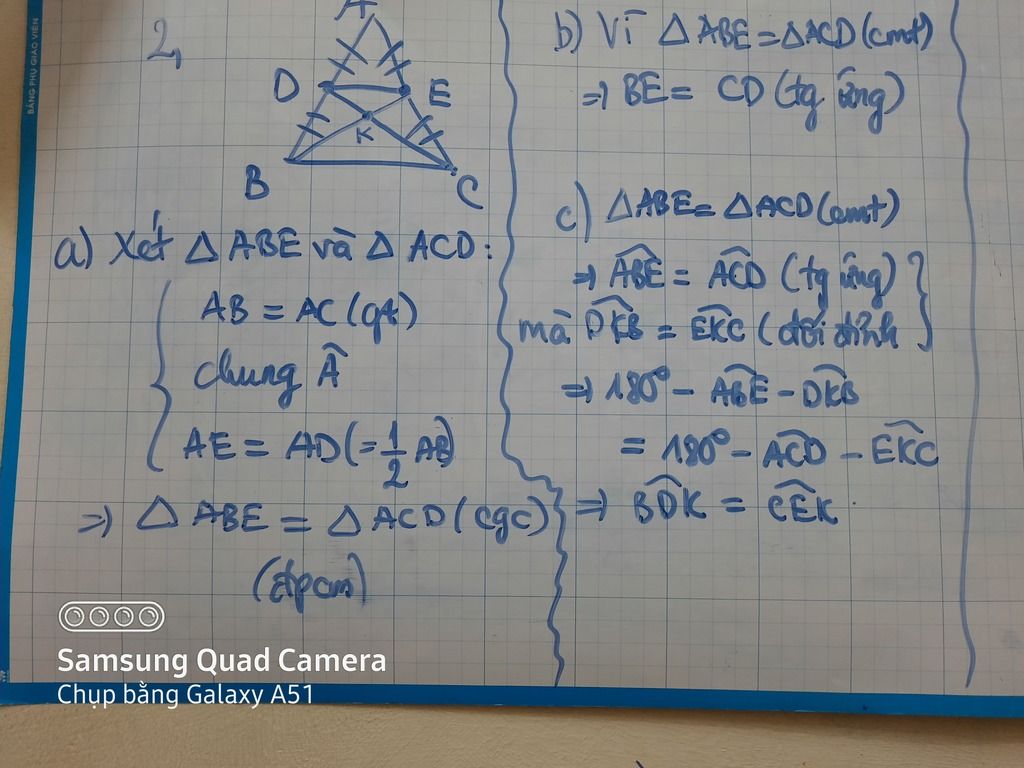 BẢNG PHỤ GIÁO VIÊN
2,
A
D
E
K
B
C
a) Xét △ ABE và △ ACD:
AB = AC (gt)
chung Â
AE = AD (= 1/2 AB)
=> △ ABE = △ ACD (cgc)
(đpcm)
b) Vì △ ABE = △ ACD (cmt)
=> BE = CD (tg ứng)
c) △ABE = △ACD (cmt)
=> \widehat{ABE} = \widehat{ACD} (tg ứng) }
mà \widehat{DKB} = \widehat{EKC} (đối đỉnh
=> 180° - \widehat{ABE} - \widehat{DKB}
= 180° - \widehat{ACD} - \widehat{EKC}
=> \widehat{BDK} = \widehat{CEK}.
Samsung Quad Camera
Chụp bằng Galaxy A51